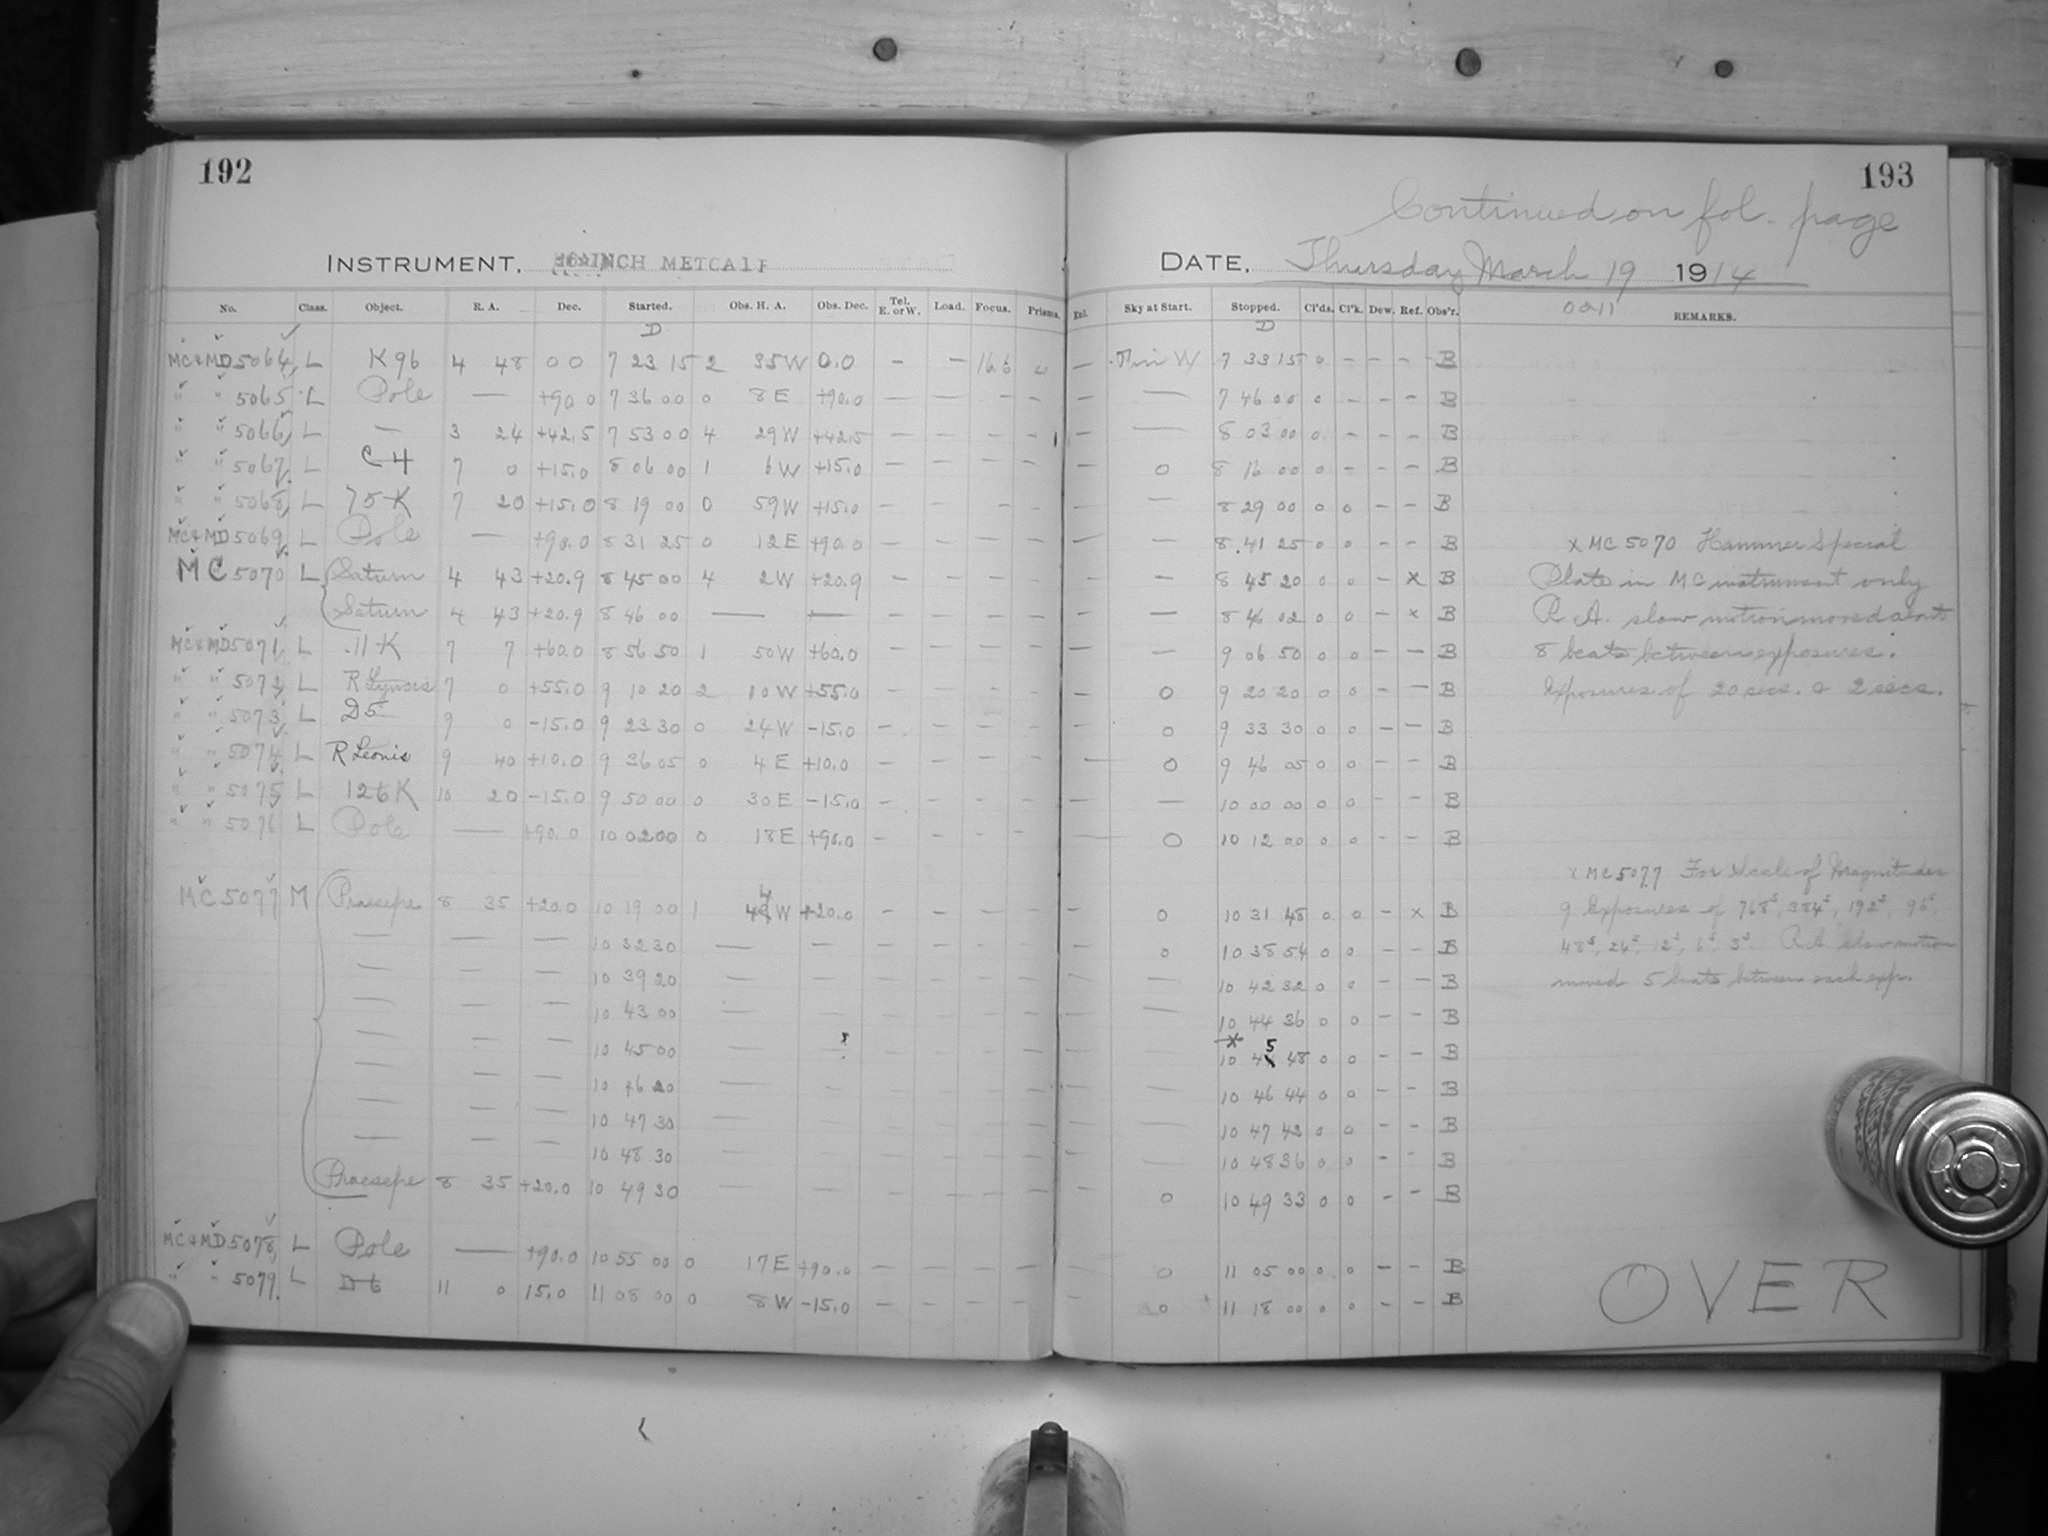 192
193
Continued on fol. page
INSTRUMENT, 16-INCH METCALF
DATE, Thursday March 19 1914
No. Class. Object. R. A. Dec. Started. Obs. H. A. Obs. Dec. Tel. E. or W. Load. Focus. Prisms. Exl. Sky at Start. Stopped. Cl'ds. Cl'k. Dew. Ref. Obs'r. REMARKS.
D D
MC & MD 5064 L K 96 4 48 00 7 23 15 2 35 W 0.0 – – 16.6 0 – Thin W 7 33 15 0 – – – B
" " 5065 L Pole — +90.0 7 36 00 0 8 E +90.0 – – – – – — 7 46 00 0 – – – B
" " 5066 L — 3 24 +42.5 7 53 00 4 29 W +42.5 – – – – – — 8 03 00 0 – – – B
" " 5067 L C 4 7 0 +15.0 8 06 00 1 6 W +15.0 – – – – – 0 8 16 00 0 – – – B
" " 5068 L 75 K 7 20 +15.0 8 19 00 0 59 W +15.0 – – – – – — 8 29 00 0 0 – – B
MC & MD 5069 L Pole — +90.0 8 31 25 0 12 E +90.0 – – – – – — 8 41 25 0 0 – – B
x MC 5070 Hammer Special
MC 5070 L Saturn 4 43 +20.9 8 45 00 4 2 W +20.9 – – – – – — 8 45 20 0 0 – x B Plate in MC instrument only
Saturn 4 43 +20.9 8 46 00 — — – – – – – — 8 46 02 0 0 – x B R. A. slow motion moved about
MC & MD 5071 L 11 K 7 7 +60.0 8 56 50 1 50 W +60.0 – – – – – — 9 06 50 0 0 – – B 8 beats between exposures.
" " 5072 L R Lyncis 7 0 +55.0 9 10 20 2 10 W +55.0 – – – – – 0 9 20 20 0 0 – – B Exposures of 20 secs. & 2 secs.
" " 5073 L D5 9 0 -15.0 9 23 30 0 24 W -15.0 – – – – – 0 9 33 30 0 0 – – B
" " 5074 L R Leonis 9 40 +10.0 9 36 05 0 4 E +10.0 – – – – – 0 9 46 05 0 0 – – B
" " 5075 L 126 K 10 20 -15.0 9 50 00 0 30 E -15.0 – – – – – — 10 00 00 0 0 – – B
" " 5076 L Pole — +90.0 10 02 00 0 18 E +90.0 – – – – – 0 10 12 00 0 0 – – B
x MC 5077 For Scale of Magnitudes
MC 5077 M Praesepe 8 35 +20.0 10 19 00 1 W +20.0 – – – – – 0 10 31 48 0 0 – x B 9 Exposures of 768s, 384s, 192s, 96s
— — — 10 32 30 — — – – – – – 0 10 38 54 0 0 – – B 48s, 24s, 12s, 6s, 3s. R.A. slow motion
— — — 10 39 20 — — – – – – – — 10 42 32 0 0 – – B moved 5 beats between each exp.
— — — 10 43 00 — — – – – – – — 10 44 36 0 0 – – B
— — — 10 45 00 — — – – – – – — x 10 45 48 0 0 – – B
— — — 10 46 20 — — – – – – – — 10 46 44 0 0 – – B
— — — 10 47 30 — — – – – – – — 10 47 42 0 0 – – B
— — — 10 48 30 — — – – – – – — 10 48 36 0 0 – – B
Praesepe 8 35 +20.0 10 49 30 — — – – – – – 0 10 49 33 0 0 – – B
MC & MD 5078 L Pole — +90.0 10 55 00 0 17 E +90.0 – – – – – 0 11 05 00 0 0 – – B
" " 5079 L D 6 11 0 15.0 11 08 00 0 8 W -15.0 – – – – – 0 11 18 00 0 0 – – B
OVER